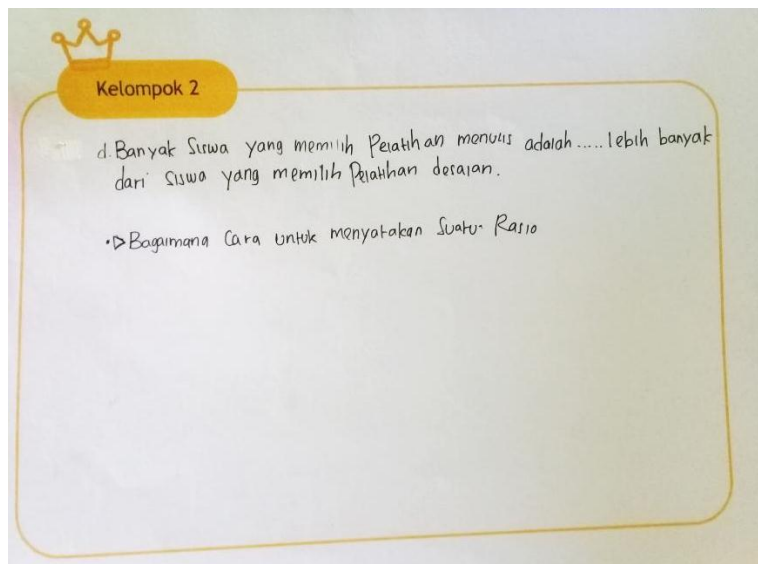 Kelompok 2
d. Banyak Siswa yang memilih Pelatihan menulis adalah ..... lebih banyak
dari siswa yang memilih Pelatihan desaian.
•▷ Bagaimana Cara untuk menyatakan Suatu Rasio